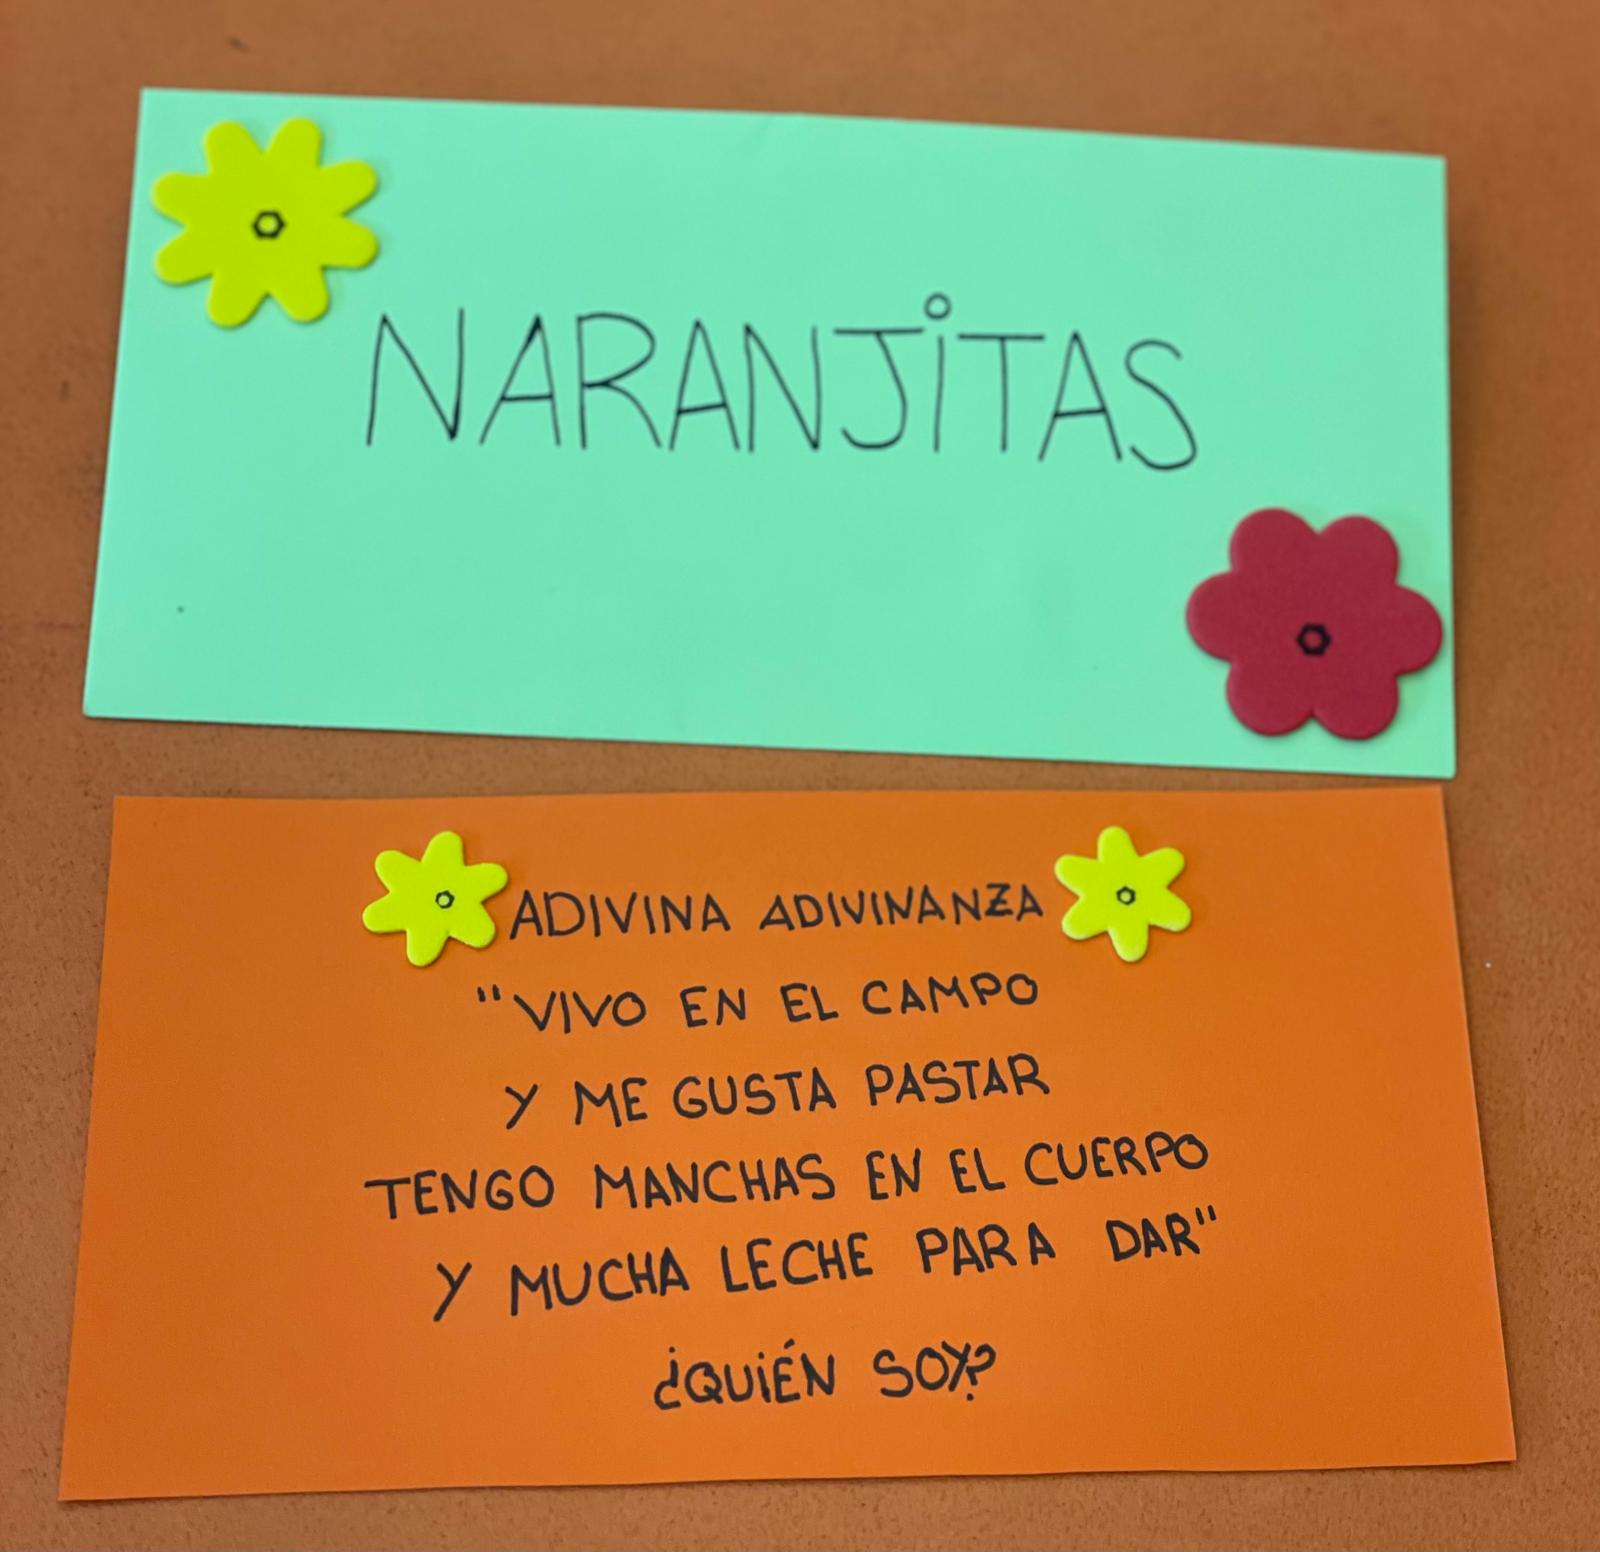 NARANJiTAS
ADIVINA ADIVINANZA
"VIVO EN EL CAMPO
Y ME GUSTA PASTAR
TENGO MANCHAS EN EL CUERPO
Y MUCHA LECHE PARA DAR"
¿QUiÉN SOY?